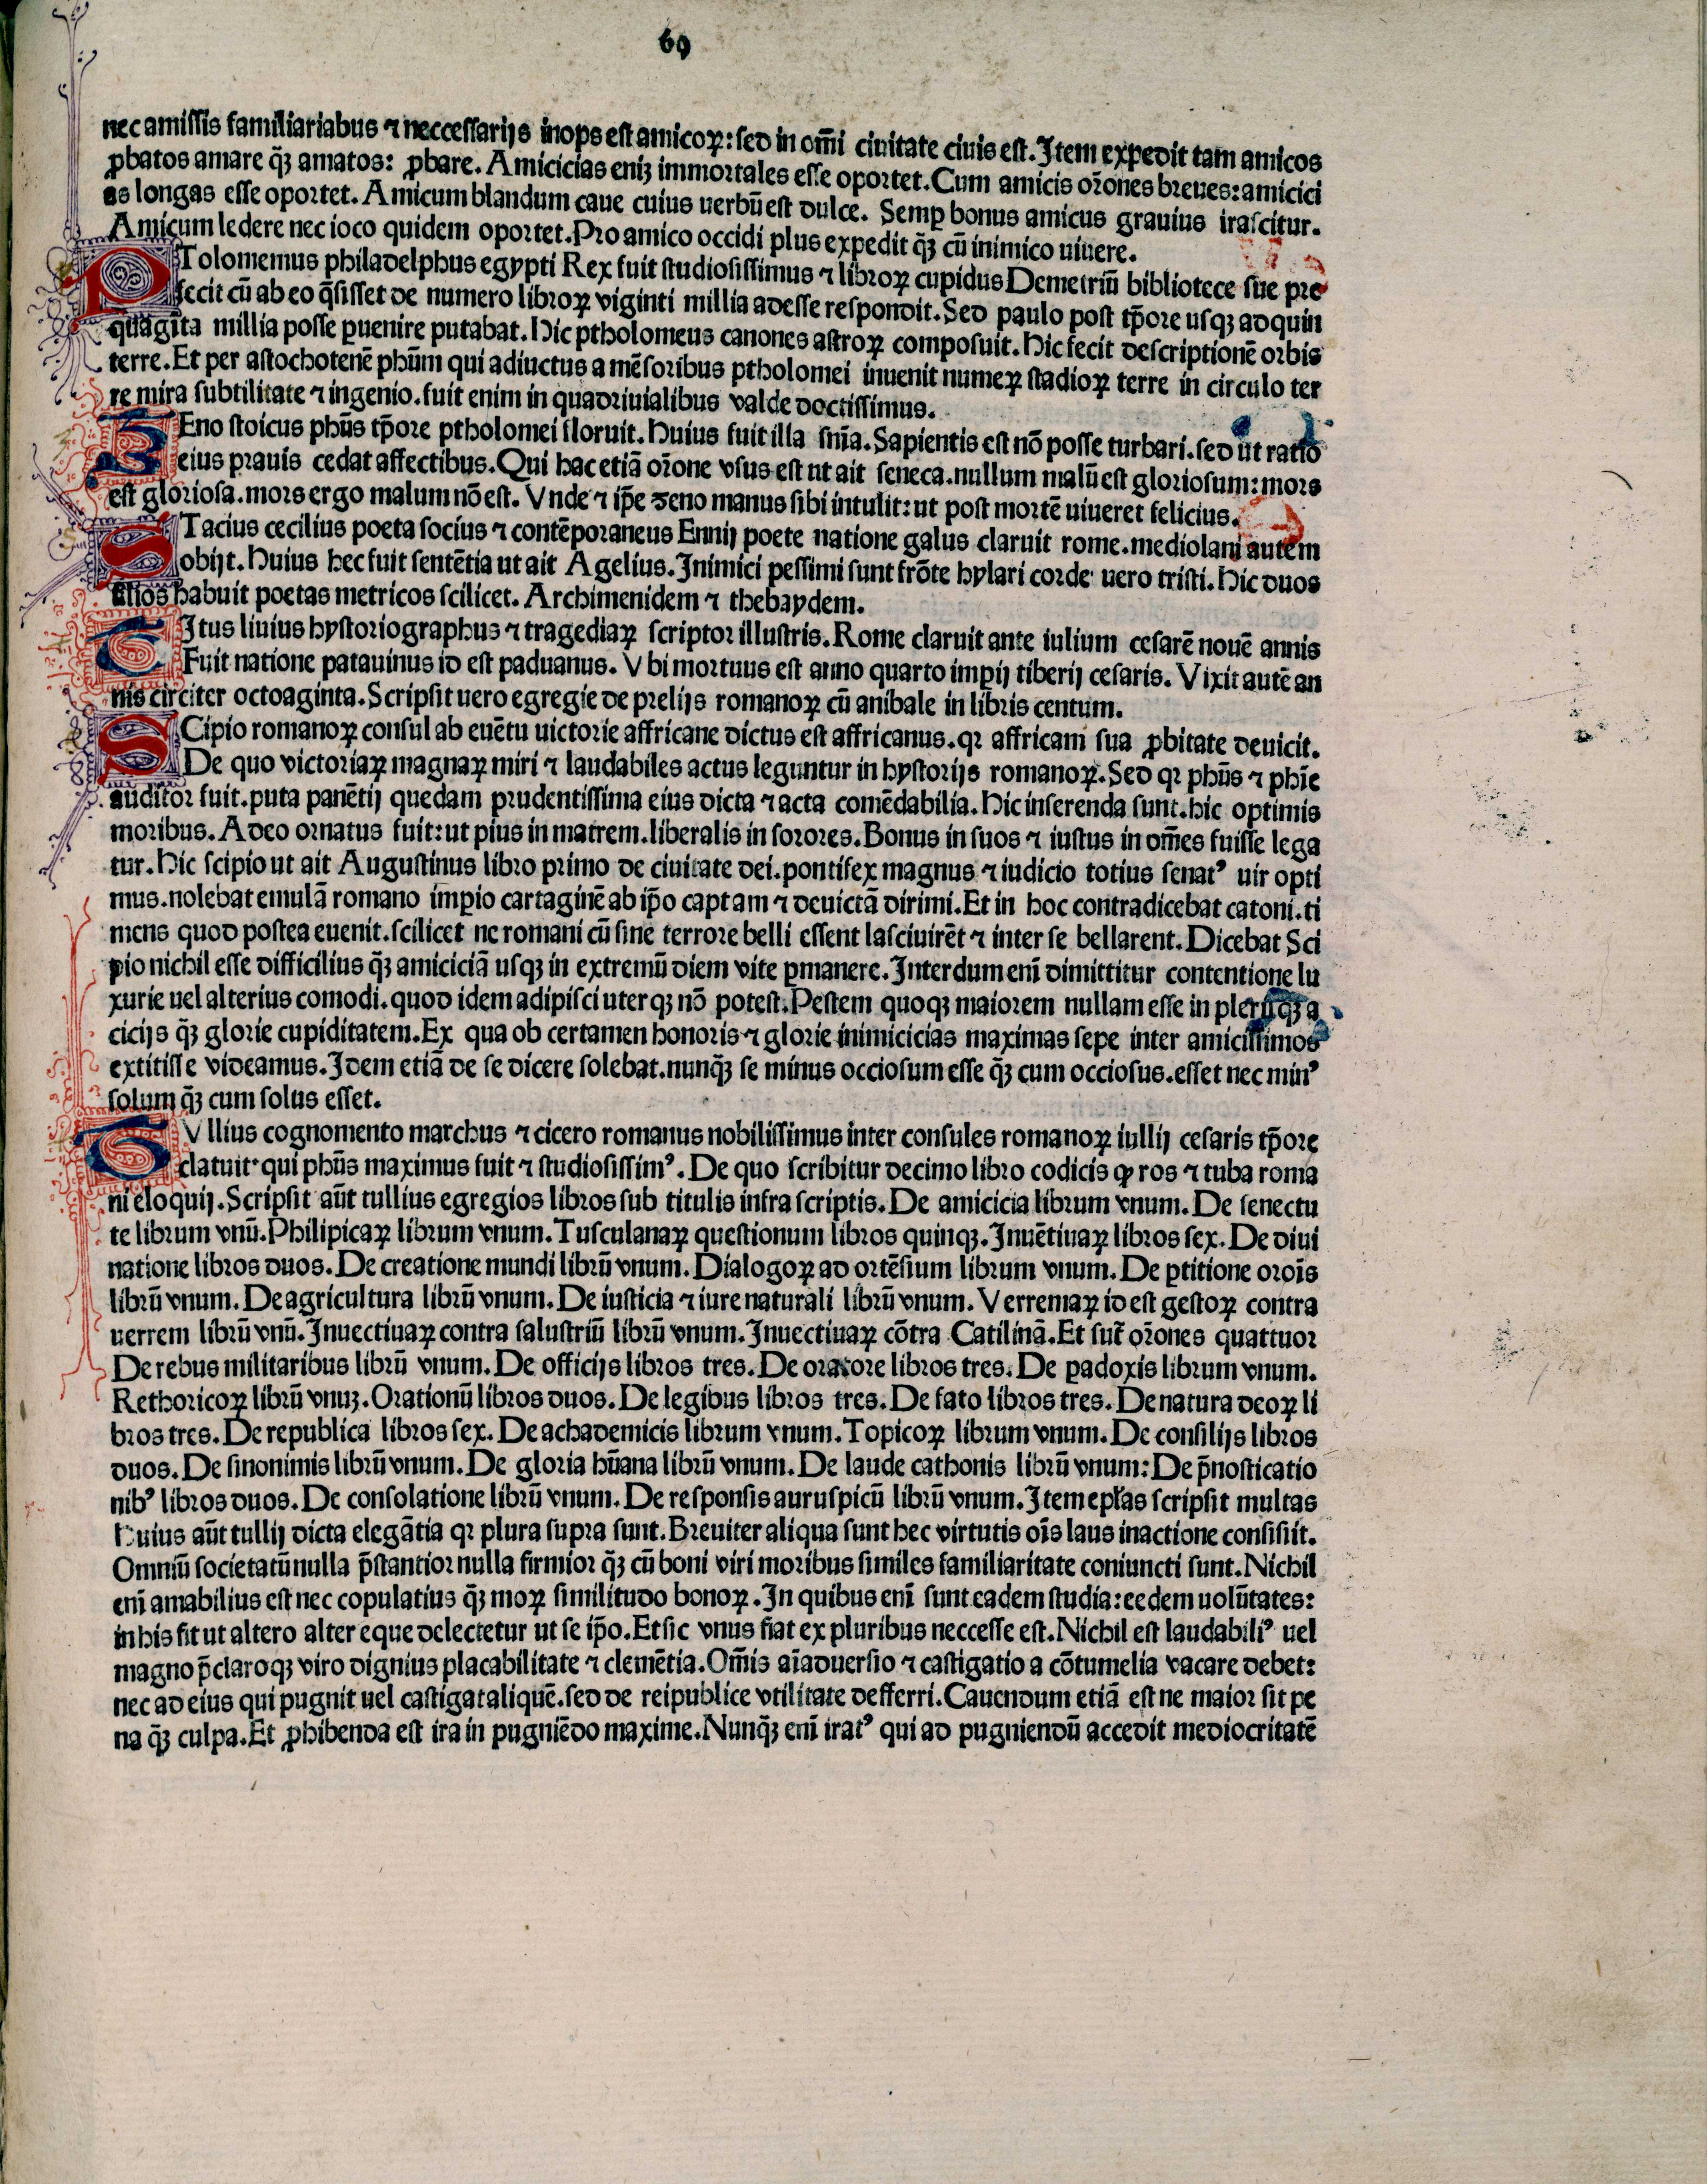 69
nec amissis familiariabus ⁊ neccessarijs inops est amicoꝝ: sed in om̄i ciuitate ciuis est. Item expedit tam amicos
ꝓbatos amare q̄ꝫ amatos: ꝓbare. Amicicias eniꝫ immortales esse oportet. Cum amicis or̄ones breues: amicici
as longas esse oportet. Amicum blandum caue cuius uerbū est dulce. Semꝑ bonus amicus grauius irascitur.
Amicum ledere nec ioco quidem oportet. Pro amico occidi plus expedit q̄ꝫ cū inimico uiuere.
PTolomemus philadelphus egypti Rex fuit studiosissimus ⁊ libroꝝ cupidus Demetriū bibliotece sue pre
fecit cū ab eo q̄sisset de numero libroꝝ viginti millia adesse respondit. Sed paulo post tp̄ore usqꝫ ad quin
quagīta millia posse ꝑuenire putabat. Hic ptholomeus canones astroꝝ composuit. Hic fecit descriptionē orbis
terre. Et per astochotenē ph̄um qui adiuctus a mēsoribus ptholomei inuenit numeꝝ stadioꝝ terre in circulo ter
re mira subtilitate ⁊ ingenio. fuit enim in quadriuialibus valde doctissimus.
ZEno stoicus ph̄us tp̄ore ptholomei floruit. Huius fuit illa sn̄ia. Sapientis est nō posse turbari. sed ut ratio
eius prauis cedat affectibus. Qui hac etiā or̄one vsus est ut ait seneca. nullum malū est gloriosum: mors
est gloriosa. mors ergo malum nō est. Vnde ⁊ ip̄e zeno manus sibi intulit: ut post mortē uiueret felicius.
STacius cecilius poeta socius ⁊ contēporaneus Ennij poete natione galus claruit rome. mediolani autem
obijt. Huius hec fuit sentētia ut ait Agelius. Inimici pessimi sunt frōte hylari corde uero tristi. Hic duos
filios habuit poetas metricos scilicet. Archimenidem ⁊ thebaydem.
TItus liuius hystoriographus ⁊ tragediaꝝ scriptor illustris. Rome claruit ante iulium cesarē nouē annis
Fuit natione patauinus id est paduanus. Vbi mortuus est anno quarto impij tiberij cesaris. Vixit autē an
nis circiter octoaginta. Scripsit uero egregie de prelijs romanoꝝ cū anibale in libris centum.
SCipio romanoꝝ consul ab euētu uictorie affricane dictus est affricanus. qr affricam sua ꝓbitate deuicit.
De quo victoriaꝝ magnaꝝ miri ⁊ laudabiles actus leguntur in hystorijs romanoꝝ. Sed qr ph̄us ⁊ phīe
auditor fuit. puta panētij quedam prudentissima eius dicta ⁊ acta comēdabilia. Hic inserenda sunt. hic optimis
moribus. Adeo ornatus fuit: ut pius in matrem. liberalis in sorores. Bonus in suos ⁊ iustus in om̄es fuisse lega
tur. Hic scipio ut ait Augustinus libro primo de ciuitate dei. pontifex magnus ⁊ iudicio totius senatꝰ uir opti
mus. nolebat emulā romano imꝑio cartaginē ab ip̄o captam ⁊ deuictā dirimi. Et in hoc contradicebat catoni. ti
mens quod postea euenit. scilicet ne romani cū sine terrore belli essent lasciuirēt ⁊ inter se bellarent. Dicebat Sci
pio nichil esse difficilius q̄ꝫ amiciciā usqꝫ in extremū diem vite ꝑmanere. Interdum enī dimittitur contentione lu
xurie uel alterius comodi. quod idem adipisci uterqꝫ nō potest. Pestem quoqꝫ maiorem nullam esse in plerisqꝫ a
cicijs q̄ꝫ glorie cupiditatem. Ex qua ob certamen honoris ⁊ glorie inimicicias maximas sepe inter amicissimos
extitisse videamus. Idem etiā de se dicere solebat. nunq̄ꝫ se minus occiosum esse q̄ꝫ cum occiosus. esset nec minꝰ
solum q̄ꝫ cum solus esset.
TVllius cognomento marchus ⁊ cicero romanus nobilissimus inter consules romanoꝝ iullij cesaris tp̄ore
clatuit. qui ph̄us maximus fuit ⁊ studiosissimꝰ. De quo scribitur decimo libro codicis ꝙ ros ⁊ tuba roma
ni eloquij. Scripsit aūt tullius egregios libros sub titulis infra scriptis. De amicicia librum vnum. De senectu
te librum vnū. Philipicaꝝ librum vnum. Tusculanaꝝ questionum libros quinqꝫ. Inuētiuaꝝ libros sex. De diui
natione libros duos. De creatione mundi librū vnum. Dialogoꝝ ad ortēsium librum vnum. De ꝑtitione oroīs
librū vnum. De agricultura librū vnum. De iusticia ⁊ iure naturali librū vnum. Verremaꝝ id est gestoꝝ contra
uerrem librū vnū. Inuectiuaꝝ contra salustriū librū vnum. Inuectiuaꝝ cōtra Catilinā. Et sūt or̄ones quattuor
De rebus militaribus librū vnum. De officijs libros tres. De oratore libros tres. De ꝑadoxis librum vnum.
Rethoricoꝝ librū vnuꝫ. Orationū libros duos. De legibus libros tres. De fato libros tres. De natura deoꝝ li
bros tres. De republica libros sex. De achademicis librum vnum. Topicoꝝ librum vnum. De consilijs libros
duos. De sinonimis librū vnum. De gloria hūana librū vnum. De laude cathonis librū vnum: De p̄nosticatio
nibꝰ libros duos. De consolatione librū vnum. De responsis auruspicū librū vnum. Item epl̄as scripsit multas
Huius aūt tullij dicta elegātia qr plura supra sunt. Breuiter aliqua sunt hec virtutis oīs laus inactione consistit.
Omniū societatū nulla p̄stantior nulla firmior q̄ꝫ cū boni viri moribus similes familiaritate coniuncti sunt. Nichil
enī amabilius est nec copulatius q̄ꝫ moꝝ similitudo bonoꝝ. In quibus enī sunt eadem studia: eedem uolūtates:
in his fit ut altero alter eque delectetur ut se ip̄o. Et sic vnus fiat ex pluribus neccesse est. Nichil est laudabiliꝰ uel
magno p̄claroqꝫ viro dignius placabilitate ⁊ clemētia. Om̄is aīaduersio ⁊ castigatio a cōtumelia vacare debet:
nec ad eius qui pugnit uel castigat aliquē. sed de reipublice vtilitate defferri. Cauendum etiā est ne maior sit pe
na q̄ꝫ culpa. Et ꝓhibenda est ira in pugniēdo maxime. Nunq̄ꝫ enī iratꝰ qui ad pugniendū accedit mediocritatē